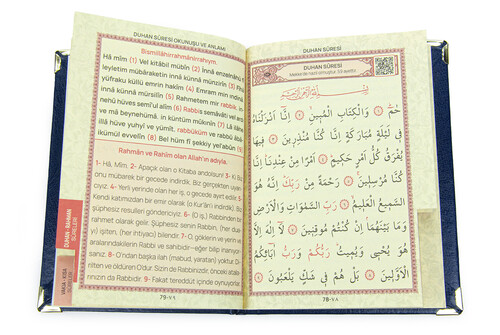 DUHAN SÛRESİ OKUNUŞU VE ANLAMI
Bismillâhirrahmânirrahıym.
Hâ mîm (1) Vel kitâbil mübîn (2) İnnâ enzelnâhü
leyletim mübâraketin innâ künnâ münzirîn (3)
yüfraku küllü emrin hakîm (4) Emram min
innâ künnâ mürsilîn (5) Rahmetem mir rabbik, in-
nehû hüves semî'ul alîm (6) Rabbis semâvâti vel
ve mâ beynehümâ. in küntüm mûkınîn (7) Lâ ilâhe
illâ hüve yuhyî ve yümît, rabbüküm ve rabbü
ikümül evvelîn (8) Bel hüm fî şekkiy yel'abûn (9)
Rahmân ve Rahîm olan Allah'ın adıyla.
1- Hâ, Mîm. 2- Apaçık olan o Kitaba andolsun! 3- Biz
onu mübarek bir gecede indirdik. Biz gerçekten uyarı-
cıyız. 4- Yerli yerinde olan her iş, o gecede ayırt edilir. 5-
Kendi katımızdan bir emir olarak (o Kur'ân'ı indirdik). Biz
şüphesiz resulleri göndericiyiz. 6- (O iş,) Rabbinden bir
rahmet olarak gelir. Şüphesiz senin Rabbin, (her şeyi)
işiten, (her ihtiyacı) bilendir. 7- O, göklerin ve yerin ve
aralarındakilerin Rabbi ve sahibidir—eğer bilip inanıyor-
sanız. 8- O'ndan başka ilah (mabud, yaratan) yoktur. Di-
rilten ve öldüren Odur. Sizin de Rabbinizdir, önceki atala-
rınızın da Rabbinizdir. 9- Fakat tereddüt içinde oynuyorlar.
79-٧٨
DUHAN - RAHMAN
SÛRELERİ
VAKIA - HAŞR
SÛRELERİ
DUHAN SÛRESİ
DUHAN SÛRESİ
Mekke'de nazil olmuştur. 59 ayettir.
بِسْمِ اللّٰهِ الرَّحْمٰنِ الرَّحِيمِ
حٰمٓ ﴿١﴾ وَالْكِتَابِ الْمُبِينِ ﴿٢﴾ اِنَّٓا اَنْزَلْنَاهُ
فِى لَيْلَةٍ مُبَارَكَةٍ اِنَّا كُنَّا مُنْذِرِينَ ﴿٣﴾ فِيهَا
يُفْرَقُ كُلُّ اَمْرٍ حَكِيمٍ ﴿٤﴾ اَمْرًا مِنْ عِنْدِنَا اِنَّا
كُنَّا مُرْسِلِينَ ﴿٥﴾ رَحْمَةً مِنْ رَبِّكَ اِنَّهُ هُوَ
السَّمِيعُ الْعَلِيمُ ﴿٦﴾ رَبِّ السَّمٰوَاتِ وَالْاَرْضِ
وَمَا بَيْنَهُمَا اِنْ كُنْتُمْ مُوقِنِينَ ﴿٧﴾ لَٓا اِلٰهَ اِلَّا
هُوَ يُحْيِى وَيُمِيتُ رَبُّكُمْ وَرَبُّ اٰبَٓائِكُمُ
الْاَوَّلِينَ ﴿٨﴾ بَلْ هُمْ فِى شَكٍّ يَلْعَبُونَ ﴿٩﴾
78-٧٨